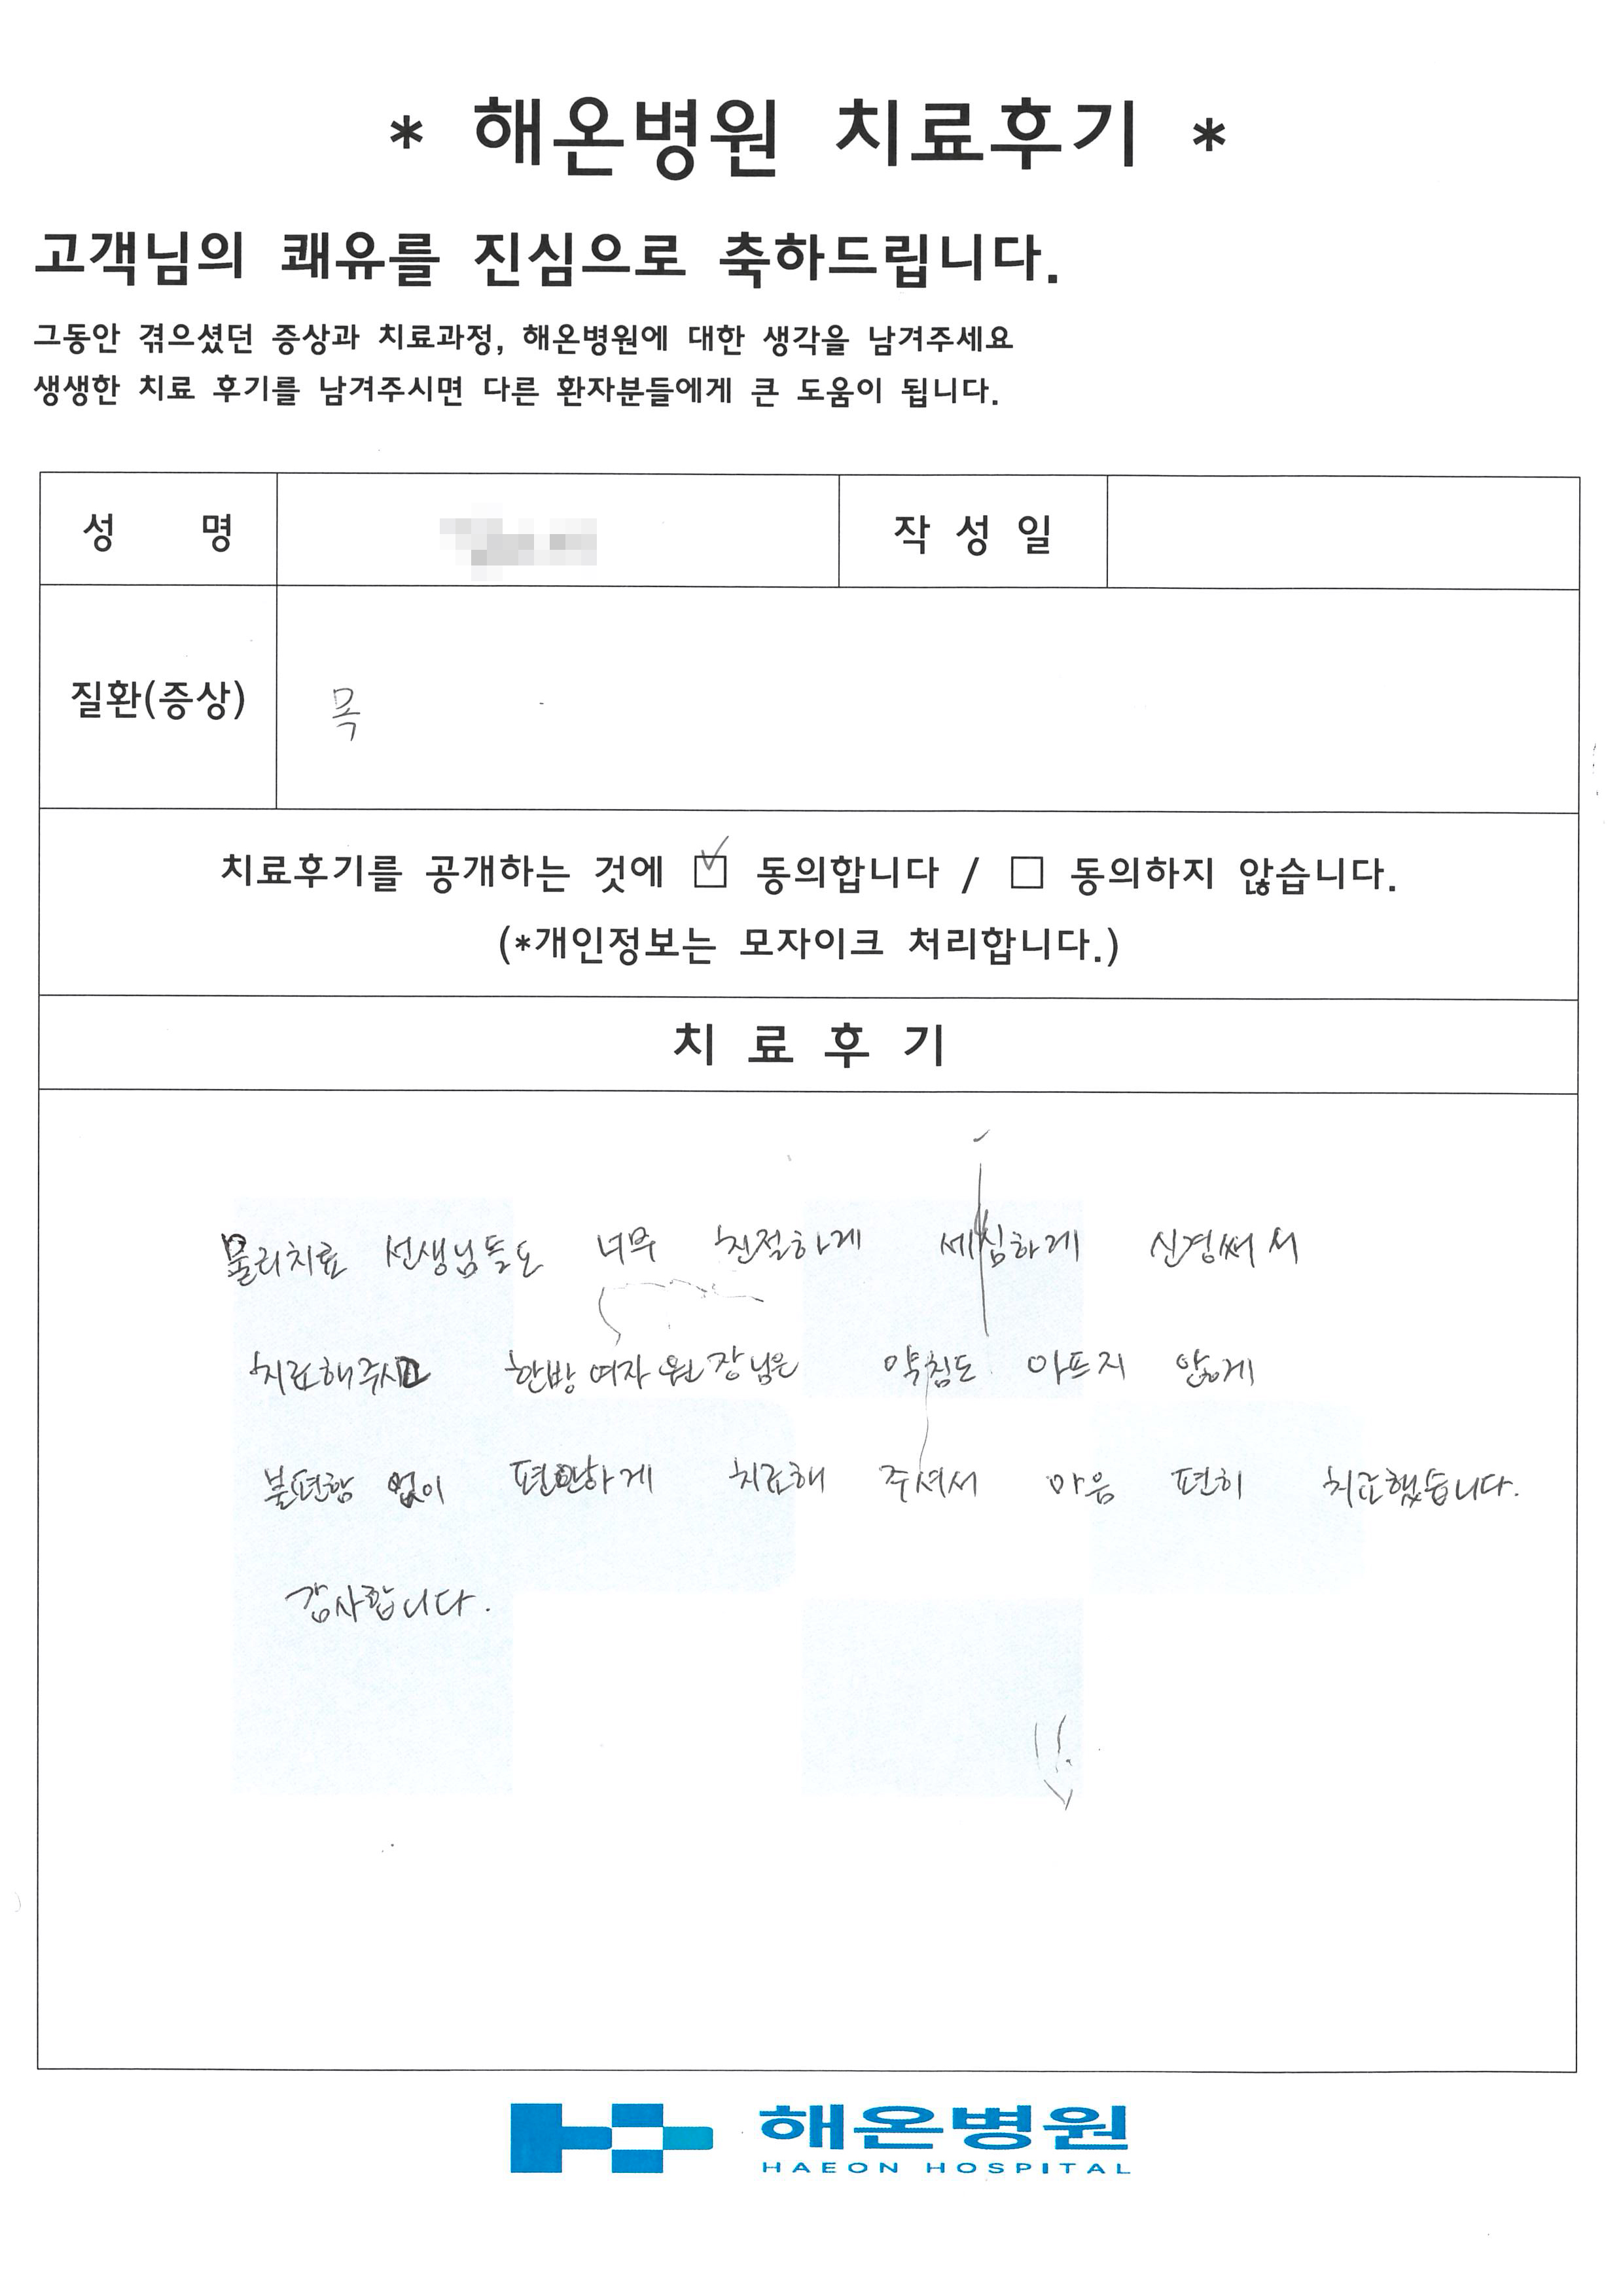 * 해온병원 치료후기 *
고객님의 쾌유를 진심으로 축하드립니다.
그동안 겪으셨던 증상과 치료과정, 해온병원에 대한 생각을 남겨주세요
생생한 치료 후기를 남겨주시면 다른 환자분들에게 큰 도움이 됩니다.
성 명 작 성 일
질환(증상) 목
치료후기를 공개하는 것에 ☑ 동의합니다 / □ 동의하지 않습니다.
(*개인정보는 모자이크 처리합니다.)
치 료 후 기
물리치료 선생님들도 너무 친절하게 세심하게 신경써서
치료해주시고 한방 여자 원장님은 약침도 아프지 않게
불편함 없이 편안하게 치료해 주셔서 마음 편히 치료했습니다.
감사합니다.
해온병원
HAEON HOSPITAL